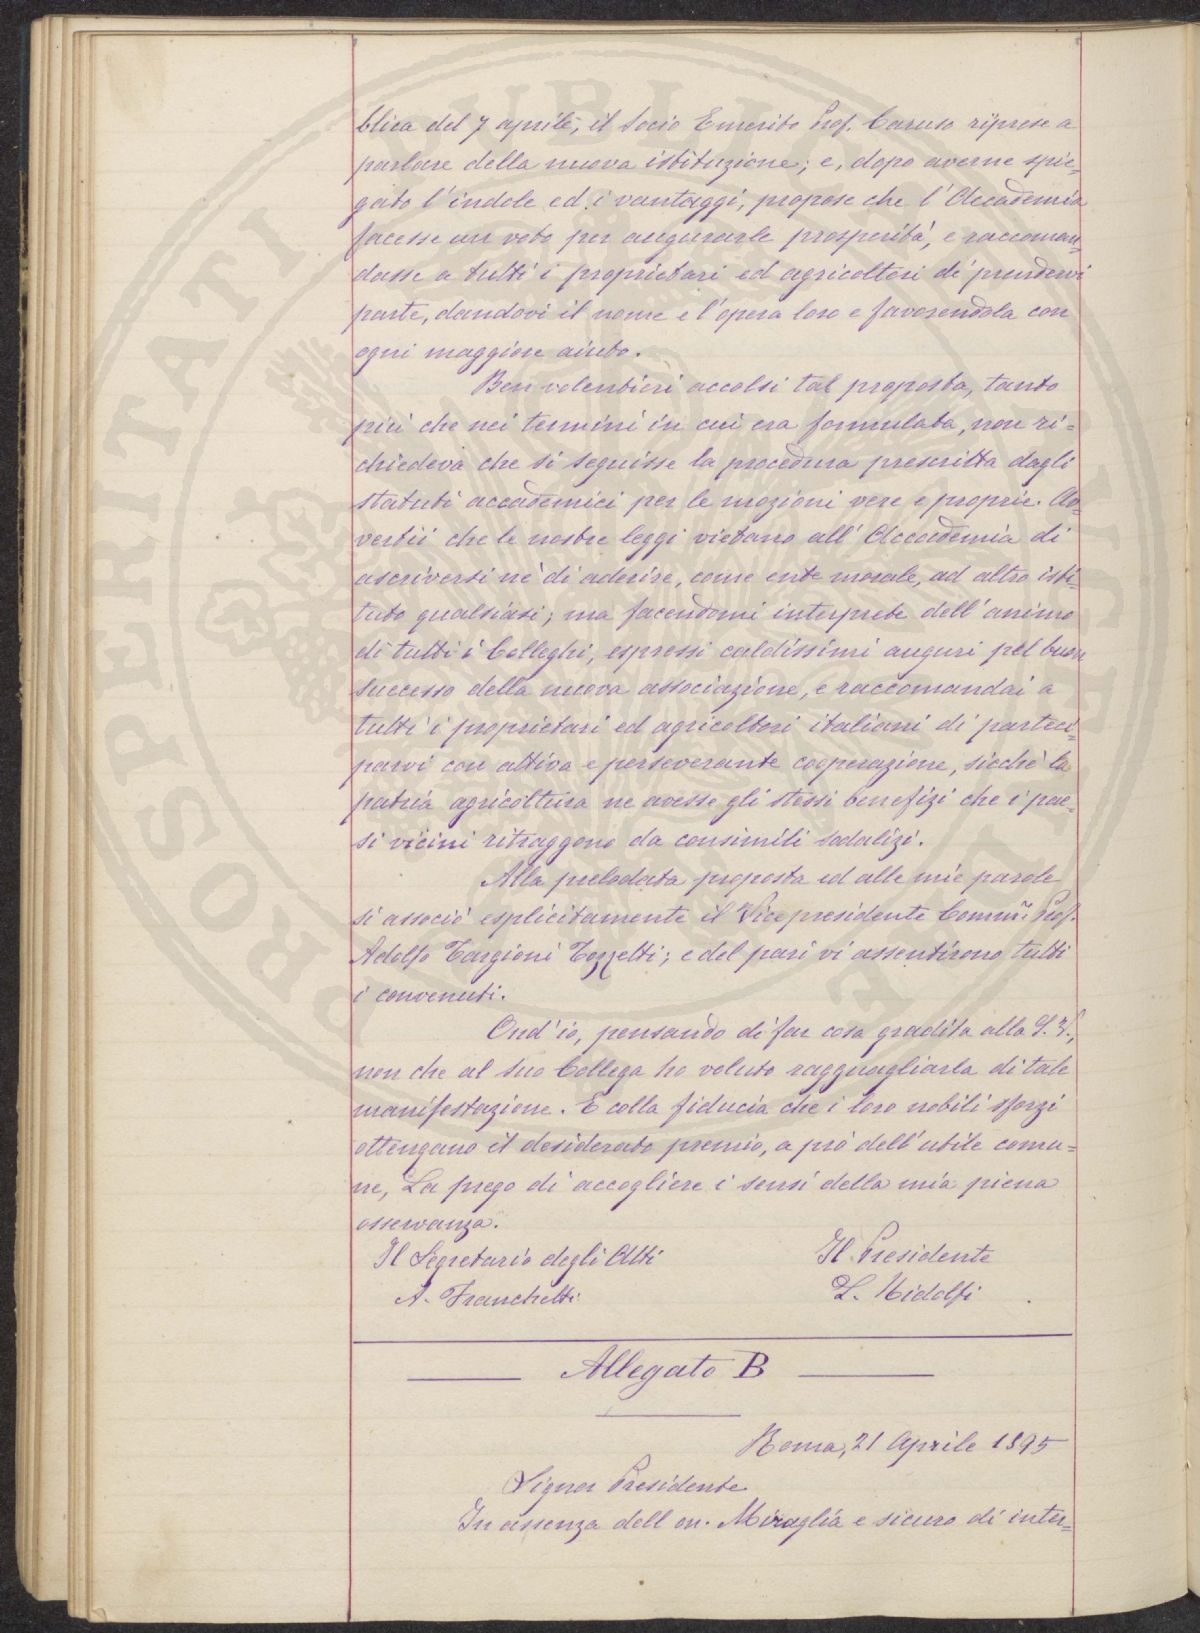 blica del 7 aprile, il Socio Emerito Prof. Caruso riprese a
parlare della nuova istituzione; e, dopo averne spie=
gato l'indole ed i vantaggi, propose che l'Accademia
facesse un voto per augurarle prosperità, e raccoman=
dasse a tutti i proprietari ed agricoltori di prendervi
parte, dandovi il nome e l'opera loro e favorendola con
ogni maggiore aiuto.
Ben volentieri accolsi tal proposta, tanto
più che nei termini in cui era formulata, non ri=
chiedeva che si seguisse la procedura prescritta dagli
statuti accademici per le mozioni vere e proprie. Av=
vertii che le nostre leggi vietano all'Accademia di
ascriversi nè di aderire, come ente morale, ad altro isti=
tuto qualsiasi; ma facendomi interprete dell'animo
di tutti i Colleghi, espressi caldissimi auguri pel buon
successo della nuova associazione, e raccomandai a
tutti i proprietari ed agricoltori italiani di parteci=
parvi con attiva e perseverante cooperazione, sicchè la
patria agricoltura ne avesse gli stessi benefizi che i pae=
si vicini ritraggono da consimili sodalizi.
Alla prelodata proposta ed alle mie parole
si associò esplicitamente il Vicepresidente Comm. Prof.
Adolfo Targioni Tozzetti; e del pari vi assentirono tutti
i convenuti.
Ond'io, pensando di far cosa gradita alla S. V.,
non che al suo Collega ho voluto ragguagliarla di tale
manifestazione. E colla fiducia che i loro nobili sforzi
ottengano il desiderato premio, a prò dell'utile comu=
ne, La prego di accogliere i sensi della mia piena
osservanza.
Il Segretario degli Atti Il Presidente
A. Franchetti L. Ridolfi
Allegato B
Roma, 21 Aprile 1895
Signor Presidente
In assenza dell on. Miraglia e sicuro di inter=
PROSPERITATI PUBLICAE AUGENDAE